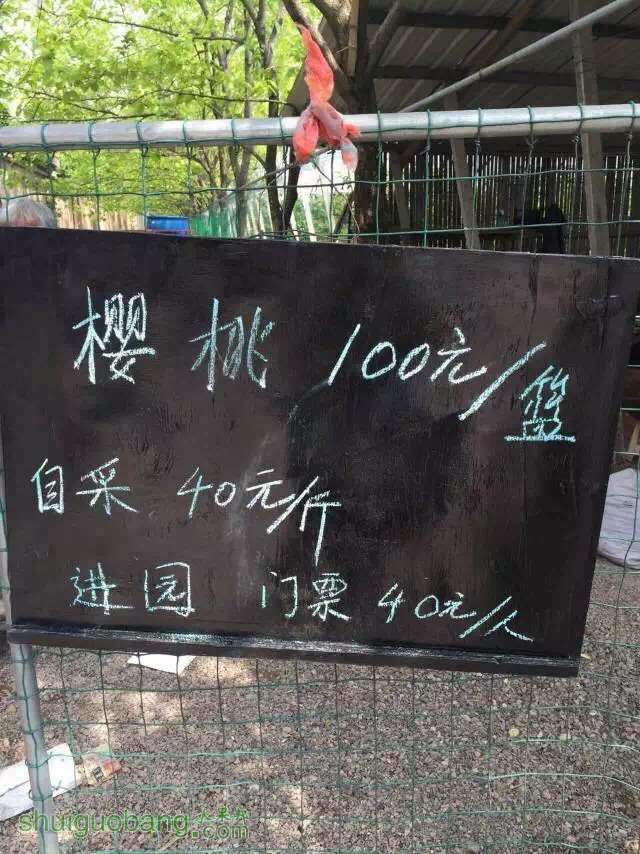 樱桃 100元/篮
自采 40元/斤
进园 门票 40元/人
shuiguobang.com